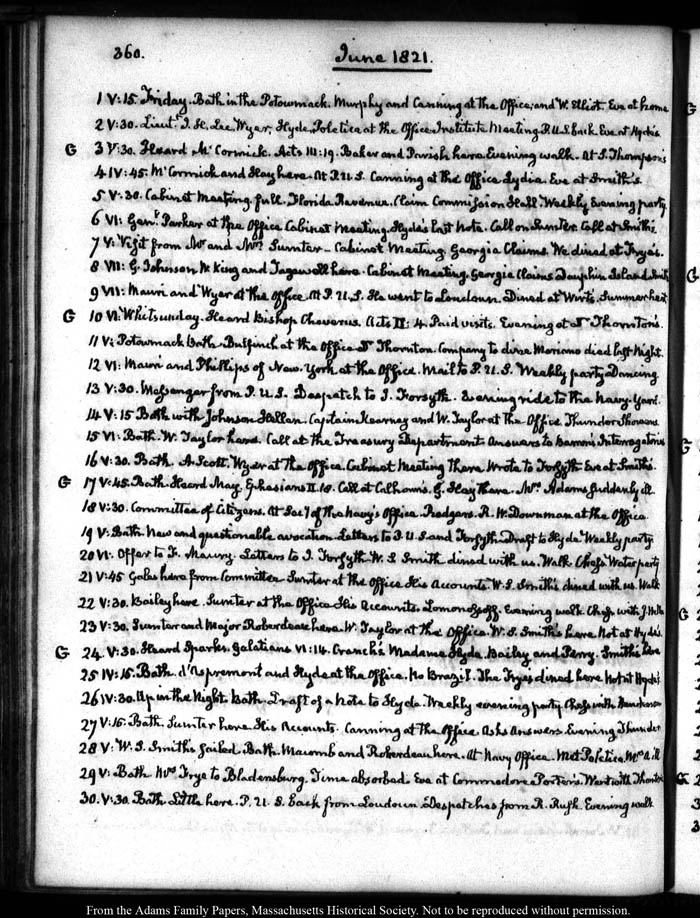 360.
June 1821.
1 V:15. Friday. Bath in the Potowmack. Murphy and Canning at the Office, and W. Elliot. Eve at home
2 V:30. Lieutt. J. H. Lee, Wyer, Hyde, Poletica at the Office. Institute Meeting. P.U.S. back. Eve at Hyde's
G 3 V:30. Heard McCormick. Acts III:19. Baker and Parish here. Evening walk. At S. Thompson's
4 IV:45. McCormick and Hay here. At P.U.S. Canning at the Office Lydia. Eve at Smith's.
5 V:30. Cabinet Meeting. full. Florida Revenue. Claim Commission Hall. Weekly Evening party
6 VI: Genl. Parker at the Office Cabinet Meeting. Hyde's last Note. Call on Sumter. Call at Smith's
7 V: Visit from Mr. and Mrs. Sumter — Cabinet Meeting. Georgia Claims. We dined at Frye's.
8 VII: G. Johnson W. King and Tagewell here. Cabinet Meeting. Georgia Claims Dauphin Island. Smith
9 VII: Mauri and Wyer at the Office. At P.U.S. He went to Loudoun. Dined at Wirt's. Summer heat
G 10 VI. Whitsunday. Heard Bishop Cheverus. Acts II: 4. Paid visits. Evening at Dr. Thornton's.
11 V: Potowmack Bath. Bulfinch at the Office Dr. Thornton. Company to dine Moriano died last Night.
12 VI: Mauri and Phillips of New-York at the Office. Mail to P.U.S. Weekly party Dancing
13 V:30. Messenger from P.U.S. Despatch to J. Forsyth. Evening ride to the Navy-Yard.
14 V:15 Bath with Johnson Hellen. Captain Kearney and W. Taylor at the Office. Thunder Showers
15 VI: Bath. W. Taylor here. Call at the Treasury Department. Answers to Barron's Interrogatories
16 V:30. Bath. A. Scott, Wyer at the Office. Cabinet Meeting there. Wrote to Forsyth. Eve at Smith's.
G 17 V:45. Bath. Heard May. Ephesians II.10. Call at Calhoun's. G. Hay there. Mrs. Adams suddenly ill.
18 V:30. Committee of Citizens. At Secy of the Navy's Office. Rodgers. R. W. Downman at the Office.
19 V: Bath. New and questionable avocation. Letters to P.U.S. and Forsyth. Draft to Hyde. Weekly party
20 VI: Offer to F. Maury. Letters to J. Forsyth. W. S. Smith dined with us. Walk. Chess Water party
21 V:45 Gales here from Committee. Sumter at the Office His Accounts. W. S. Smith's dined with us. Walk
22 V:30. Bailey here. Sumter at the Office His Accounts. Lomonosoff. Evening walk. Chess with J. Hellen
23 V:30. Sumter and Major Roberdeau here. W. Taylor at the Office. W. S. Smith's here. Not at Hyde's.
G 24. V:30. Heard Sparks. Galatians VI:14. Cranch's Madame Hyde, Bailey and Perry. Smith's here
25 IV:15. Bath. d'Apremont and Hyde at the Office. No Brazil. The Fryes dined here. Not at Hyde's
26 IV:30. Up in the Night. Bath. Draft of a Note to Hyde. Weekly evening party. Chess with Henderson
27 V:15. Bath. Sumter here His Accounts. Canning at the Office. Asks Answers. Evening Thunder
28 V: W. S. Smith's sailed. Bath. Macomb and Roberdeau here. At Navy Office. Met Poletica. Mrs. A. ill
29 V: Bath. Mrs. Frye to Bladensburg. Time absorbed. Eve at Commodore Porter's. Went with Thornton
30. V:30. Bath. Little here. P.U.S. back from Loudoun. Despatches from R. Rush. Evening walk
From the Adams Family Papers, Massachusetts Historical Society. Not to be reproduced without permission.